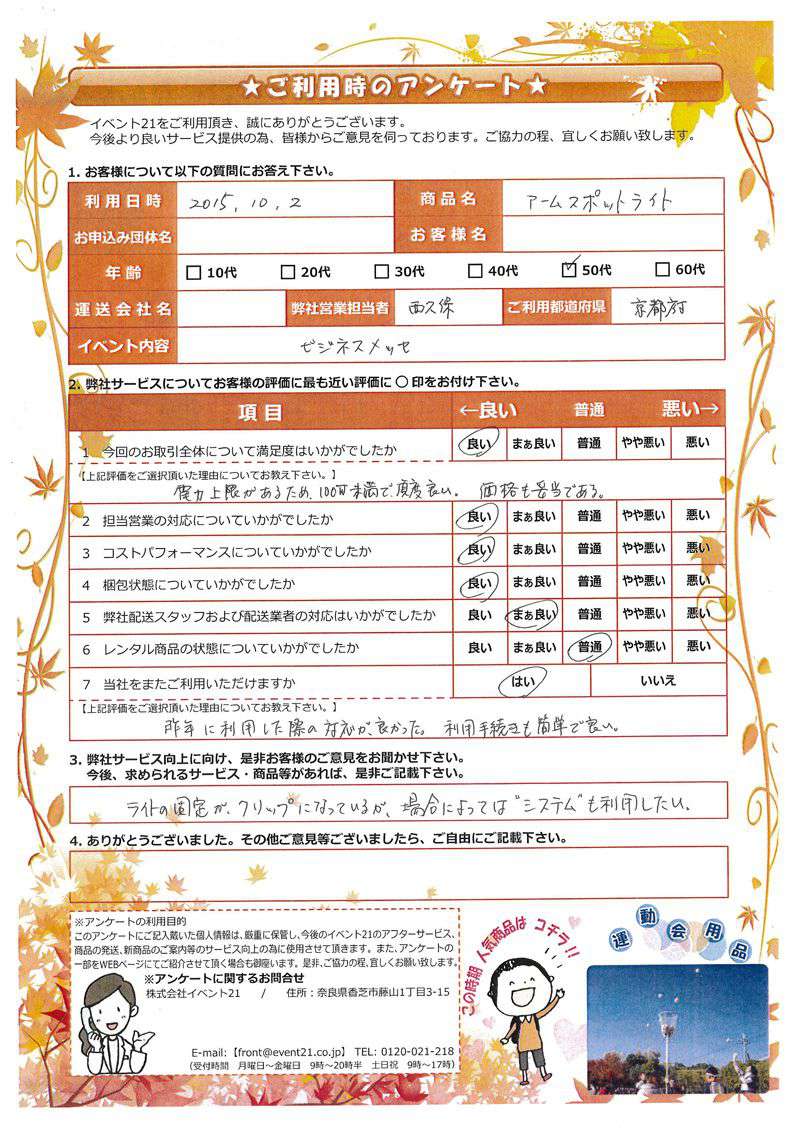 ★ご利用時のアンケート★
イベント21をご利用頂き、誠にありがとうございます。
今後より良いサービス提供の為、皆様からご意見を伺っております。ご協力の程、宜しくお願い致します。
1. お客様について以下の質問にお答え下さい。
利用日時 2015, 10, 2 商品名 アームスポットライト
お申込み団体名 お客様名
年齢 □10代 □20代 □30代 □40代 ☑50代 □60代
運送会社名 弊社営業担当者 西久保 ご利用都道府県 京都府
イベント内容 ビジネスメッセ
2. 弊社サービスについてお客様の評価に最も近い評価に ○ 印をお付け下さい。
項目 ←良い 普通 悪い→
1 今回のお取引全体について満足度はいかがでしたか 良い まぁ良い 普通 やや悪い 悪い
【上記評価をご選択頂いた理由についてお教え下さい。】
電力上限があるため、100W未満で照度良い。 価格も妥当である。
2 担当営業の対応についていかがでしたか 良い まぁ良い 普通 やや悪い 悪い
3 コストパフォーマンスについていかがでしたか 良い まぁ良い 普通 やや悪い 悪い
4 梱包状態についていかがでしたか 良い まぁ良い 普通 やや悪い 悪い
5 弊社配送スタッフおよび配送業者の対応はいかがでしたか 良い まぁ良い 普通 やや悪い 悪い
6 レンタル商品の状態についていかがでしたか 良い まぁ良い 普通 やや悪い 悪い
7 当社をまたご利用いただけますか はい いいえ
【上記評価をご選択頂いた理由についてお教え下さい。】
昨年に利用した際の対応が、良かった。 利用手続きも簡単で良い。
3. 弊社サービス向上に向け、是非お客様のご意見をお聞かせ下さい。
今後、求められるサービス・商品等があれば、是非ご記載下さい。
ライトの固定が、クリップになっているが、場合によっては"システム"も利用したい。
4. ありがとうございました。その他ご意見等ございましたら、ご自由にご記載下さい。
※アンケートの利用目的
このアンケートにご記入戴いた個人情報は、厳重に保管し、今後のイベント21のアフターサービス、
商品の発送、新商品のご案内等のサービス向上の為に使用させて頂きます。また、アンケートの
一部をWEBページにてご紹介させて頂く場合も御座います。是非、ご協力の程、宜しくお願い致します。
※アンケートに関するお問合せ
株式会社イベント21 / 住所：奈良県香芝市藤山1丁目3-15
E-mail:【front@event21.co.jp】 TEL: 0120-021-218
（受付時間 月曜日～金曜日 9時～20時半 土日祝 9時～17時）
この時期 人気商品は コチラ!!
運動会用品